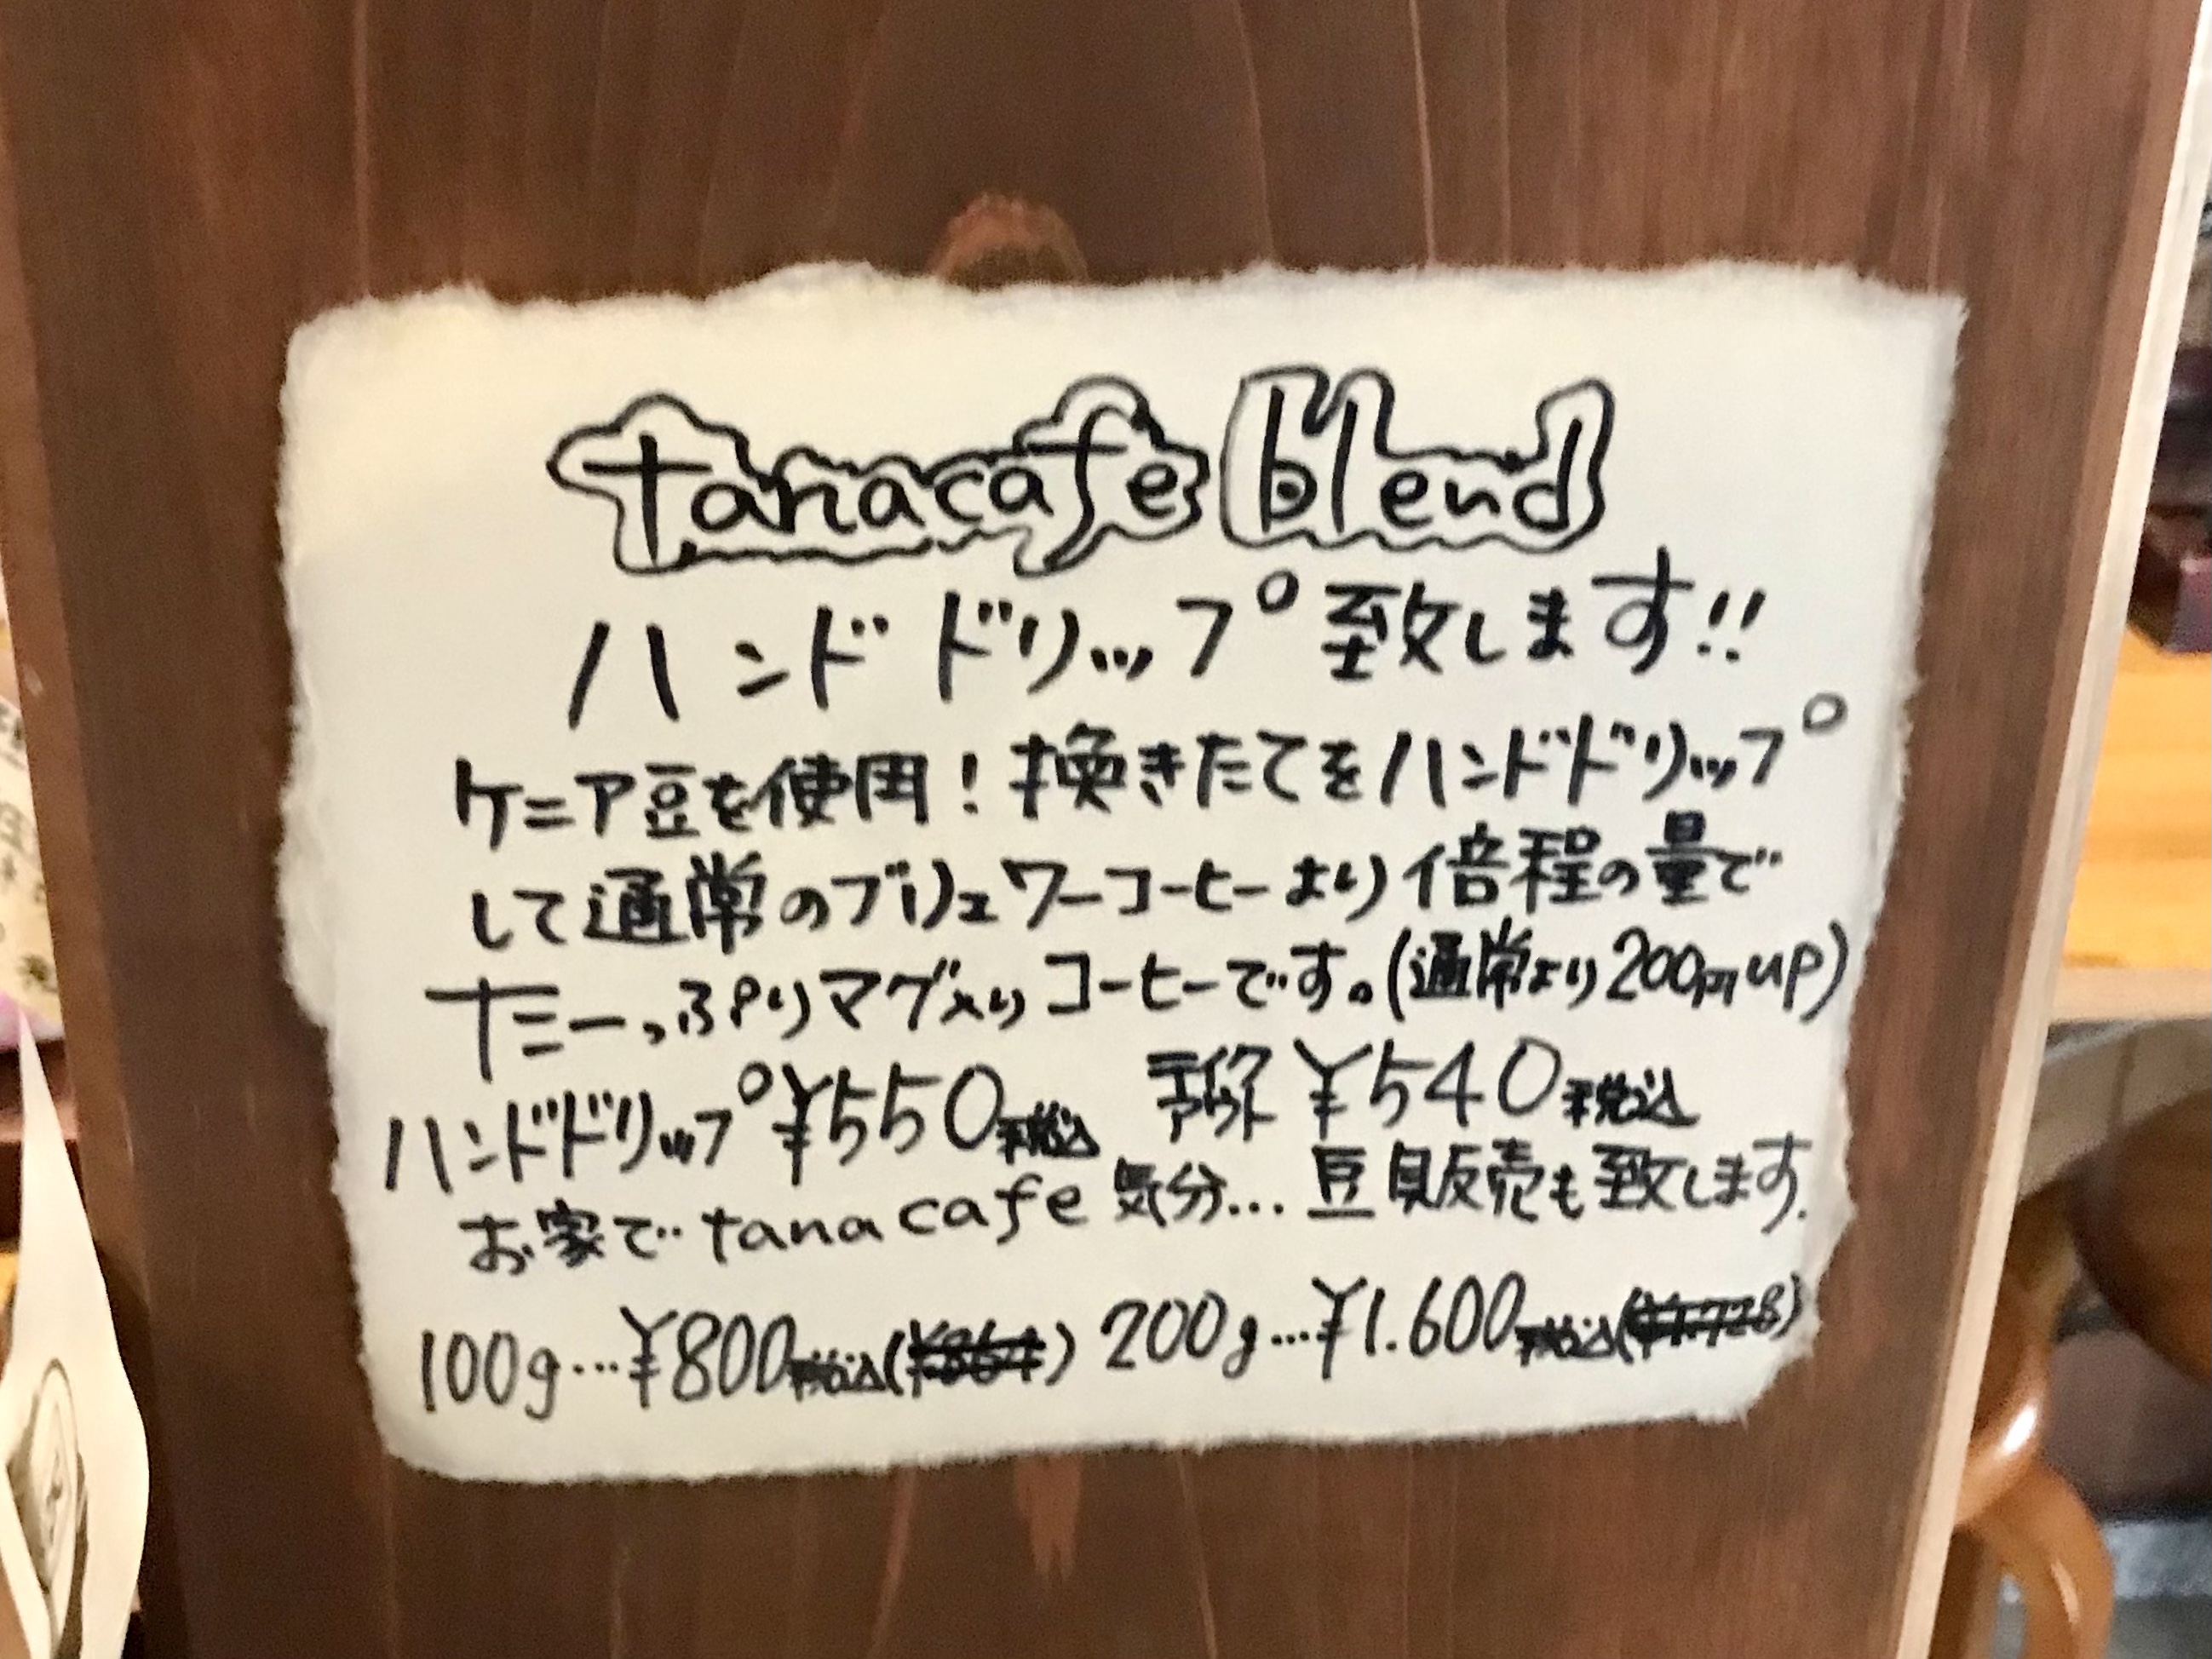 tanacafe blend
ハンドドリップ致します!!
ケニア豆を使用!挽きたてをハンドドリップ
して通常のブリュワーコーヒーより倍程の量で
たーっぷりマグ入りコーヒーです。(通常より200ml up)
ハンドドリップ¥550税込 テイクアウト ¥540税込
お家で tanacafe 気分... 豆販売も致します.
100g...¥800税込(¥864) 200g...¥1.600税込(¥1.728)